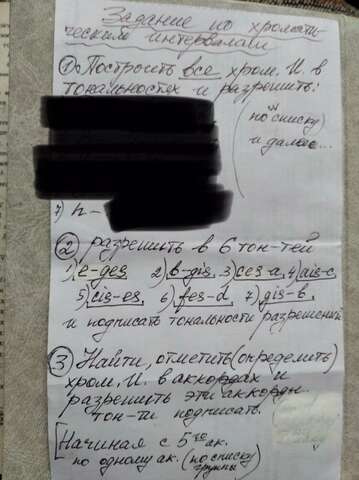 Задание по хромати-
ческим интервалам
① Построить все хром. И. в
тональностях и разрешить:
(по списку)
и далее...
7) h-
② разрешить в 6 тон-тей
1) e-ges 2) b-gis, 3) ces-a, 4) ais-c,
5) cis-es, 6) fes-d, 7) gis-b,
и подписать тональности разрешений
③ Найти, отметить (определить)
хром. И. в аккордах и
разрешить эти аккорды.
тон-ти подписать.
[Начиная с 5го ак.
по одному ак. (по списку
группы)